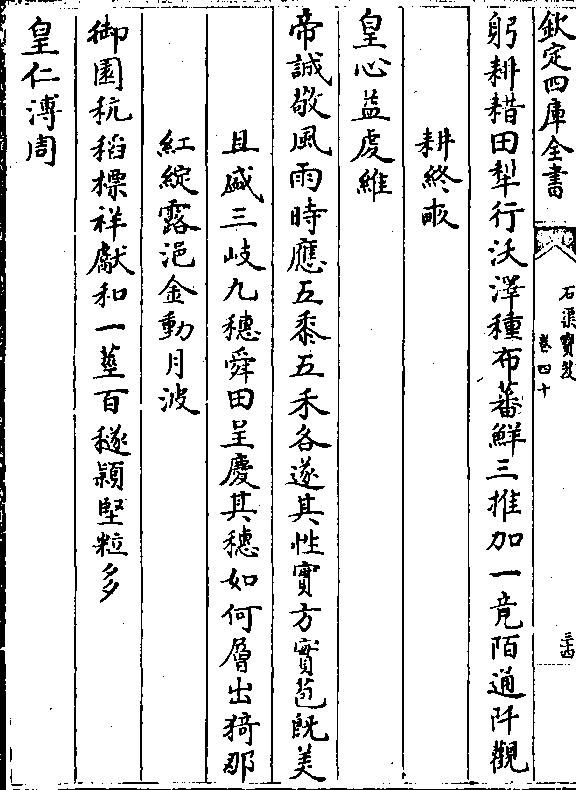 欽定四庫全書
石渠寶笈
卷四十
三十四
躬耕耤田犁行沃澤種布蕃鮮三推加一竟陌通阡觀
耕終畝
皇心益虔維
帝誠敬風雨時應五黍五禾各遂其性實方實苞既美
且盛三岐九穗舜田呈慶其穗如何層出猗那
紅綻露浥金動月波
御園秔稻標祥獻和一莖百穟穎堅粒多
皇仁溥周